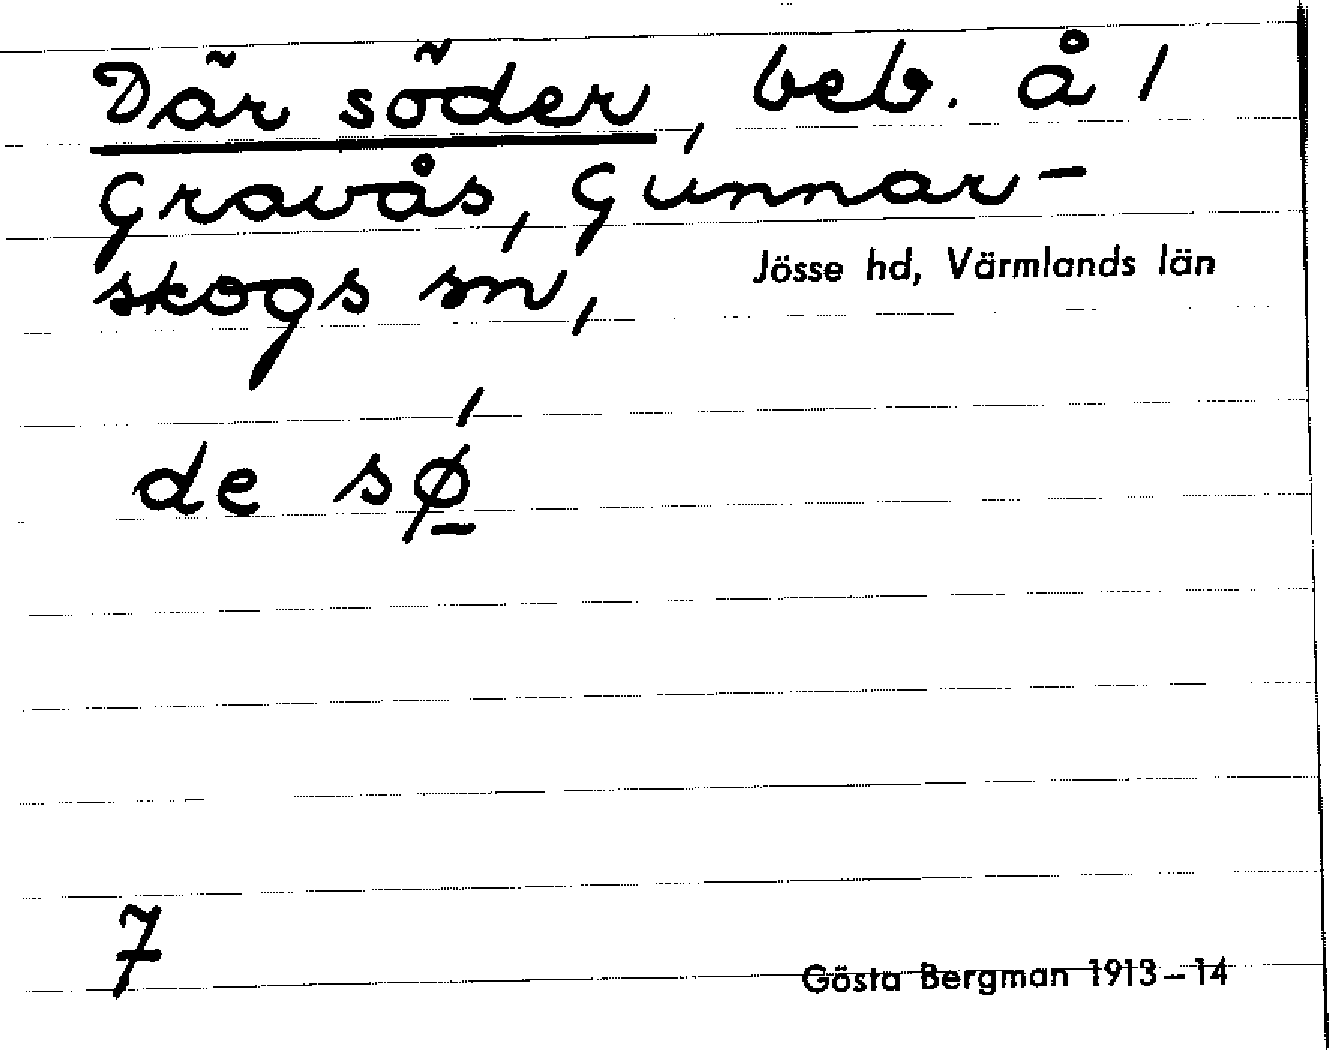 Där söder, beb. å 1
Gravås, Gunnar-
skogs sn,
Jösse hd, Värmlands län
de sǿ̲
7
Gösta Bergman 1913–14